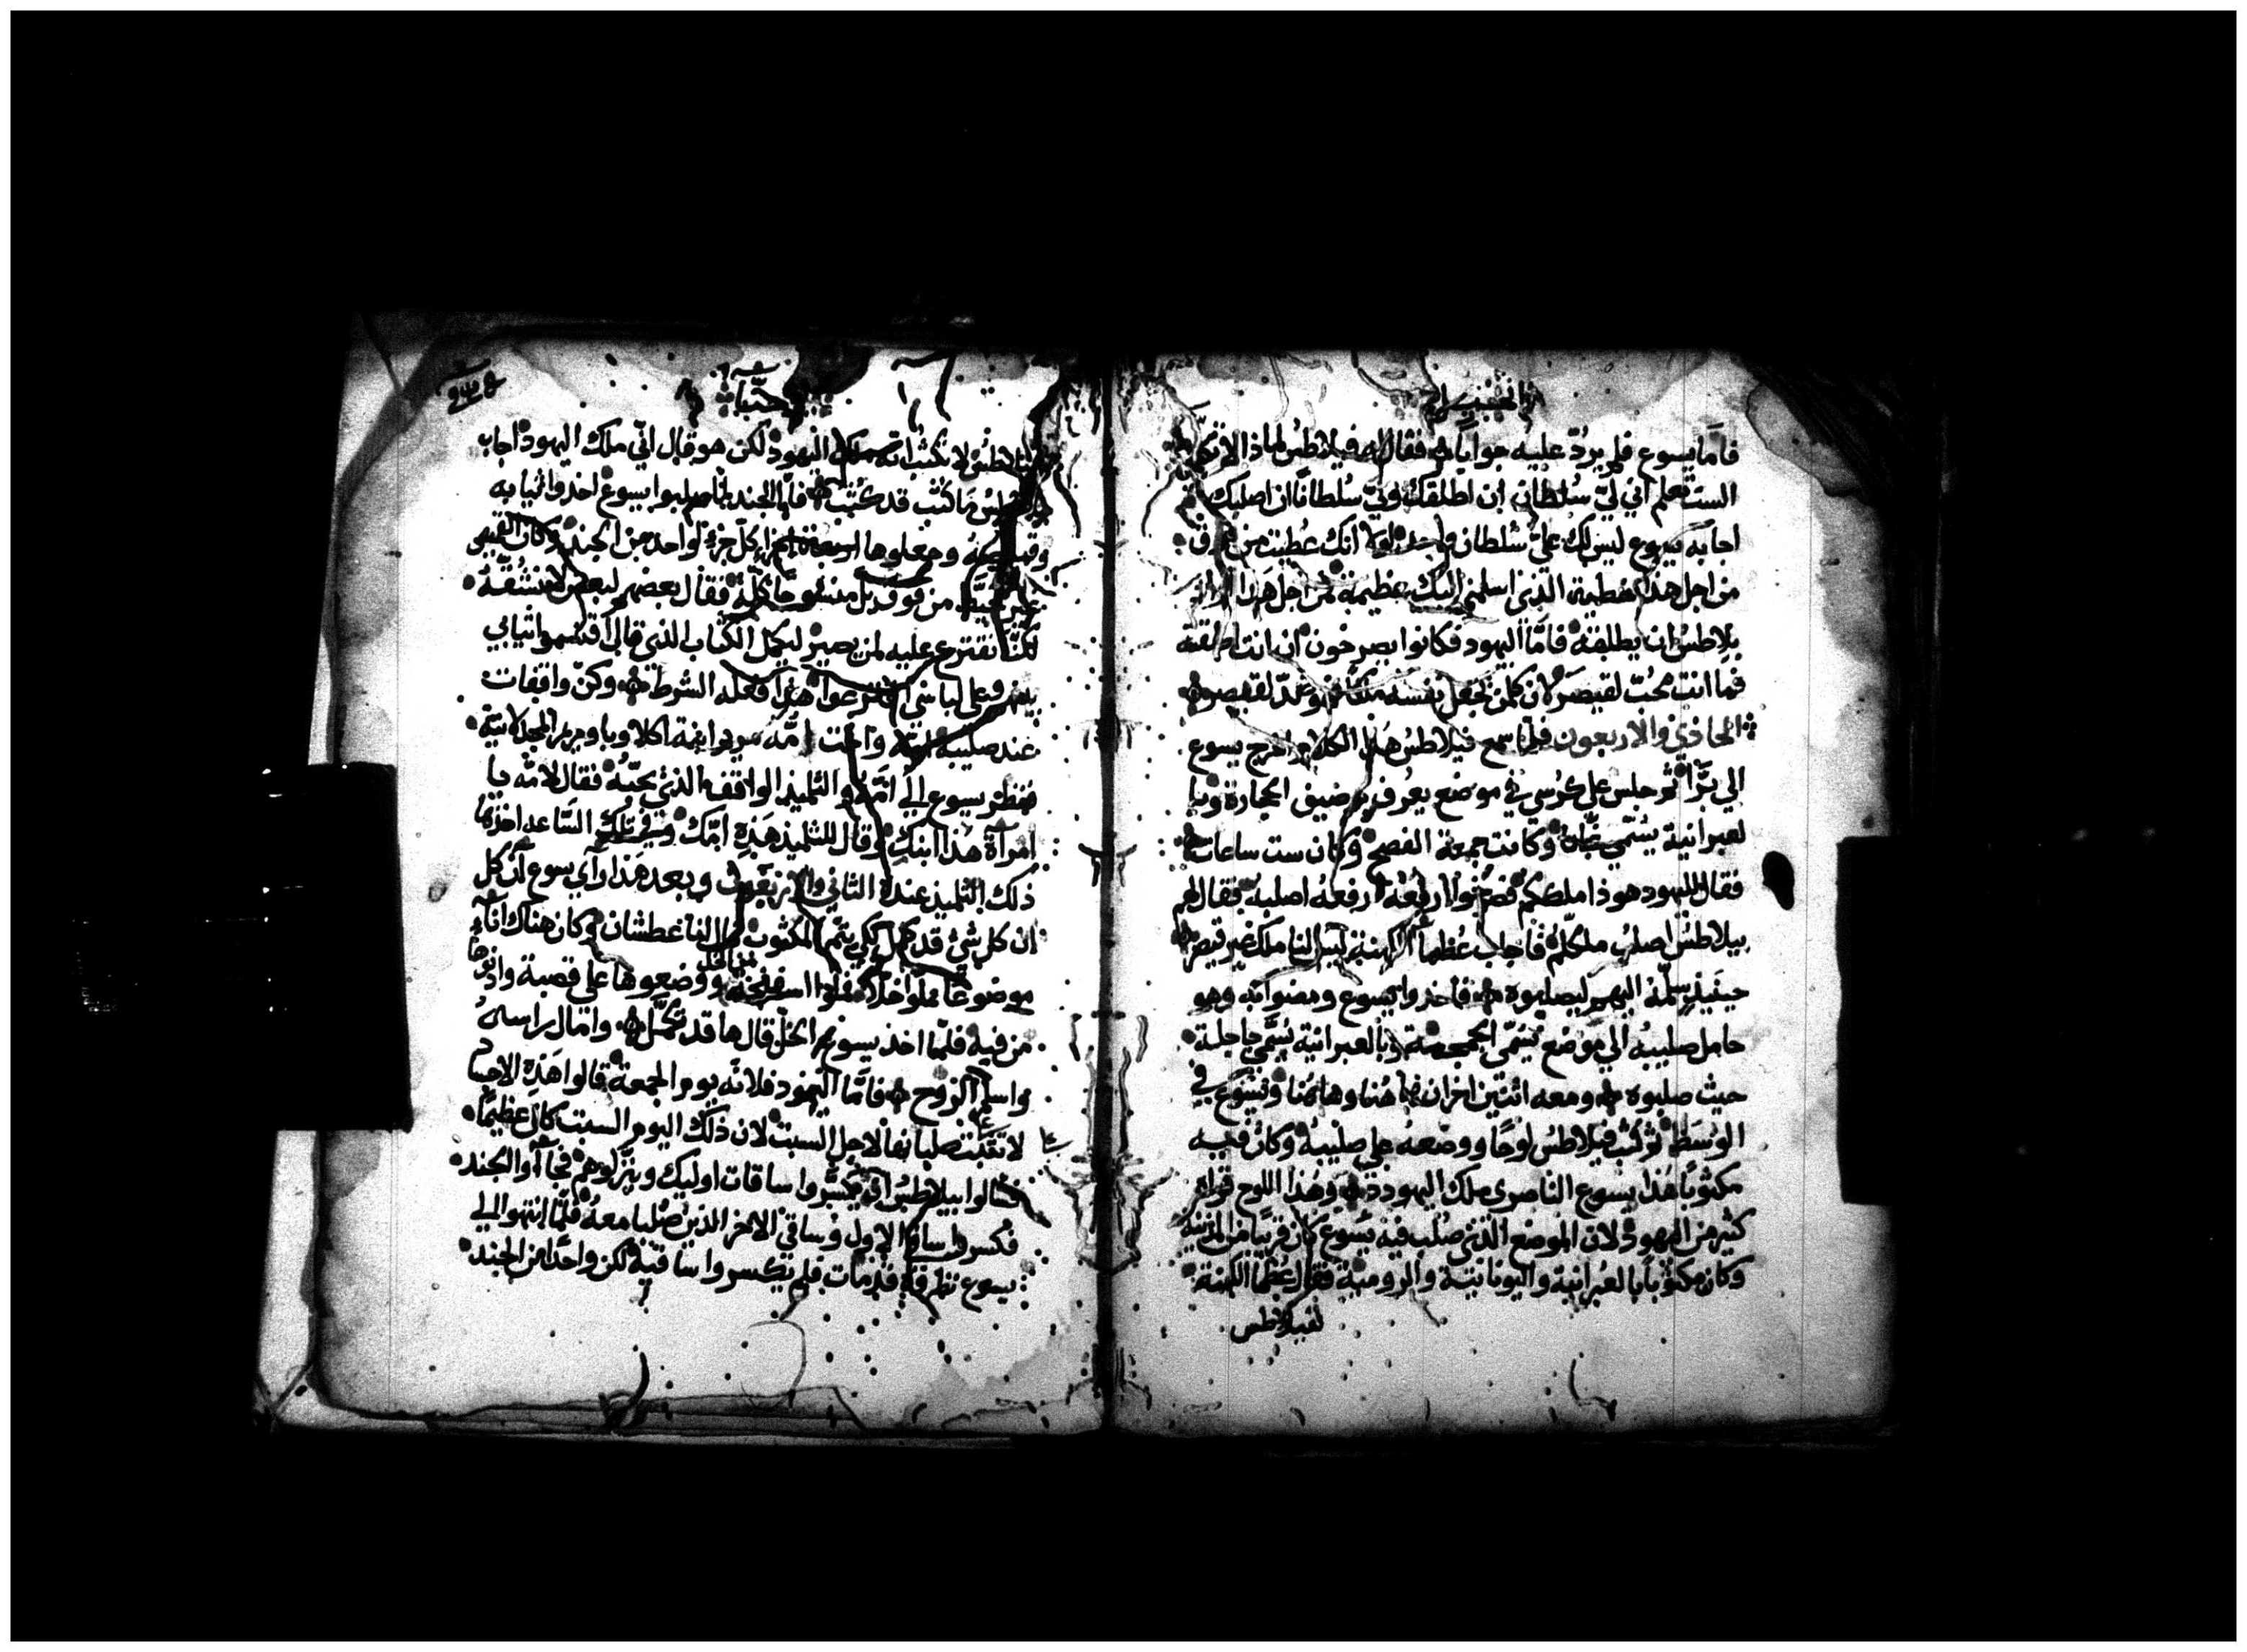 فامّا يسوع فلم يردّ عليه جوابًا فقال له فيلاطس لماذا لا تكلمني
الست تعلم اني ليّ سُلطان ان اطلقك وليّ سُلطانًا ان اصلبك
اجابه يسوع ليس لك عليّ سُلطان ولا انك عُطيت من فوق
من اجل هذا خطية الذى اسلمني اليك عظيمة من اجل هذا اراد
بيلاطس ان يطلقه فامّا اليهود فكانوا يصرخون ان انت اطلقته
فما انت محبّ لقيصر لان كلمن يجعل نفسه ملكًا فهو عدّ لقيصر
الحاذي والاربعون فلمّا سمع فيلاطس هذا الكلام اخرج يسوع
الي برّا ثم جلس علي كرسي في موضع يعرف برضيف الحجارة وبا
لعبرانية يسمّي وكانت جمعة الفصح وكان ست ساعات
فقال لليهود هو ذا ملككم فصرخوا ارفعه ارفعه اصلبه فقال لهم
بيلاطس اصلب ملككم فاجاب عُظما الكهنة ليس لنا ملك غير قيصر
حينيذ سلّمه اليهم ليصلبوه فاخذوا يسوع ومضوا به وهو
حامل صليبه الي موضع يسمّي الجمجمة وبالعبرانية يسمّي جاجلة
حيث صلبوه ومعه اثنين اخران هاهُنا وهاهُنا ويسوع في
الوسط ثم كتب فيلاطس لوحًا ووضعه علي صليبه وكان فيه
مكتوبًا هذا يسوع الناصرى ملك اليهود وهذا اللوح قراه
كثير من اليهود لان الموضع الذى صُلب فيه يسوع كان قريبًا من المدينة
وكان مكتوبًا بالعبرانية واليونانية والرومية فقال عُظما الكهنة
لفيلاطس
يوحنّا
لبيلاطس لا تكتب انه ملك اليهود لكن هو قال انّي ملك اليهود اجاب
بيلاطس ما كتبت قد كتبت فامّا الجند لمّا صلبوا يسوع اخذوا ثيابه
وقميصه وجعلوها اربعة اجزاء كلّ جزء لواحد من الجند وكان القميص
غير مخيط من فوق بل منسوجًا كلّه فقال بعضهم لبعض لا نشقّه
لكنّا نقترع عليه لمن يصير ليكمل الكتاب الذى قال اقتسموا ثيابي
بينهم وعلي لباسي اقترعوا هذا فعله الشرط وكنّ واقفات
عند صليبه امّه واخت امّه مريم ابنة اكلاوبا ومريم المجدلانية
فنظر يسوع الي امّه والتلميذ الواقف الذى يحبّه فقال لامّه يا
امراة هذا ابنك وقال للتلميذ هذه امّك وفي تلك السّاعه اخذها
ذلك التلميذ عنده الثاني والاربعون وبعد هذا راي يسوع ان كل
ان كل شئ قد كمل لكي يتم المكتوب قال انا عطشان وكان هناك اناء
موضوعًا مملوا خلًا فملوا اسفنجة من الخل ووضعوها علي قصبة وادنوها
من فيه فلمّا اخذ يسوع الخلّ قال ها قد تكمّل وامال راسه
واسلم الروح فامّا اليهود فلانّه يوم الجمعة قالوا هذه الاجساد
لا تثبت علي صلبانها لاجل السبت لان ذلك اليوم السبت كان عظيمًا
فسالوا بيلاطس ان يكسّروا ساقات اوليك وينزلوهم فجاوا الجند
فكسروا ساقي الاول وساقي الاخر الذين صُلبا معه فلمّا انتهوا الي
يسوع نظروه قد مات فلم يكسروا ساقيه لكن واحدًا من الجند